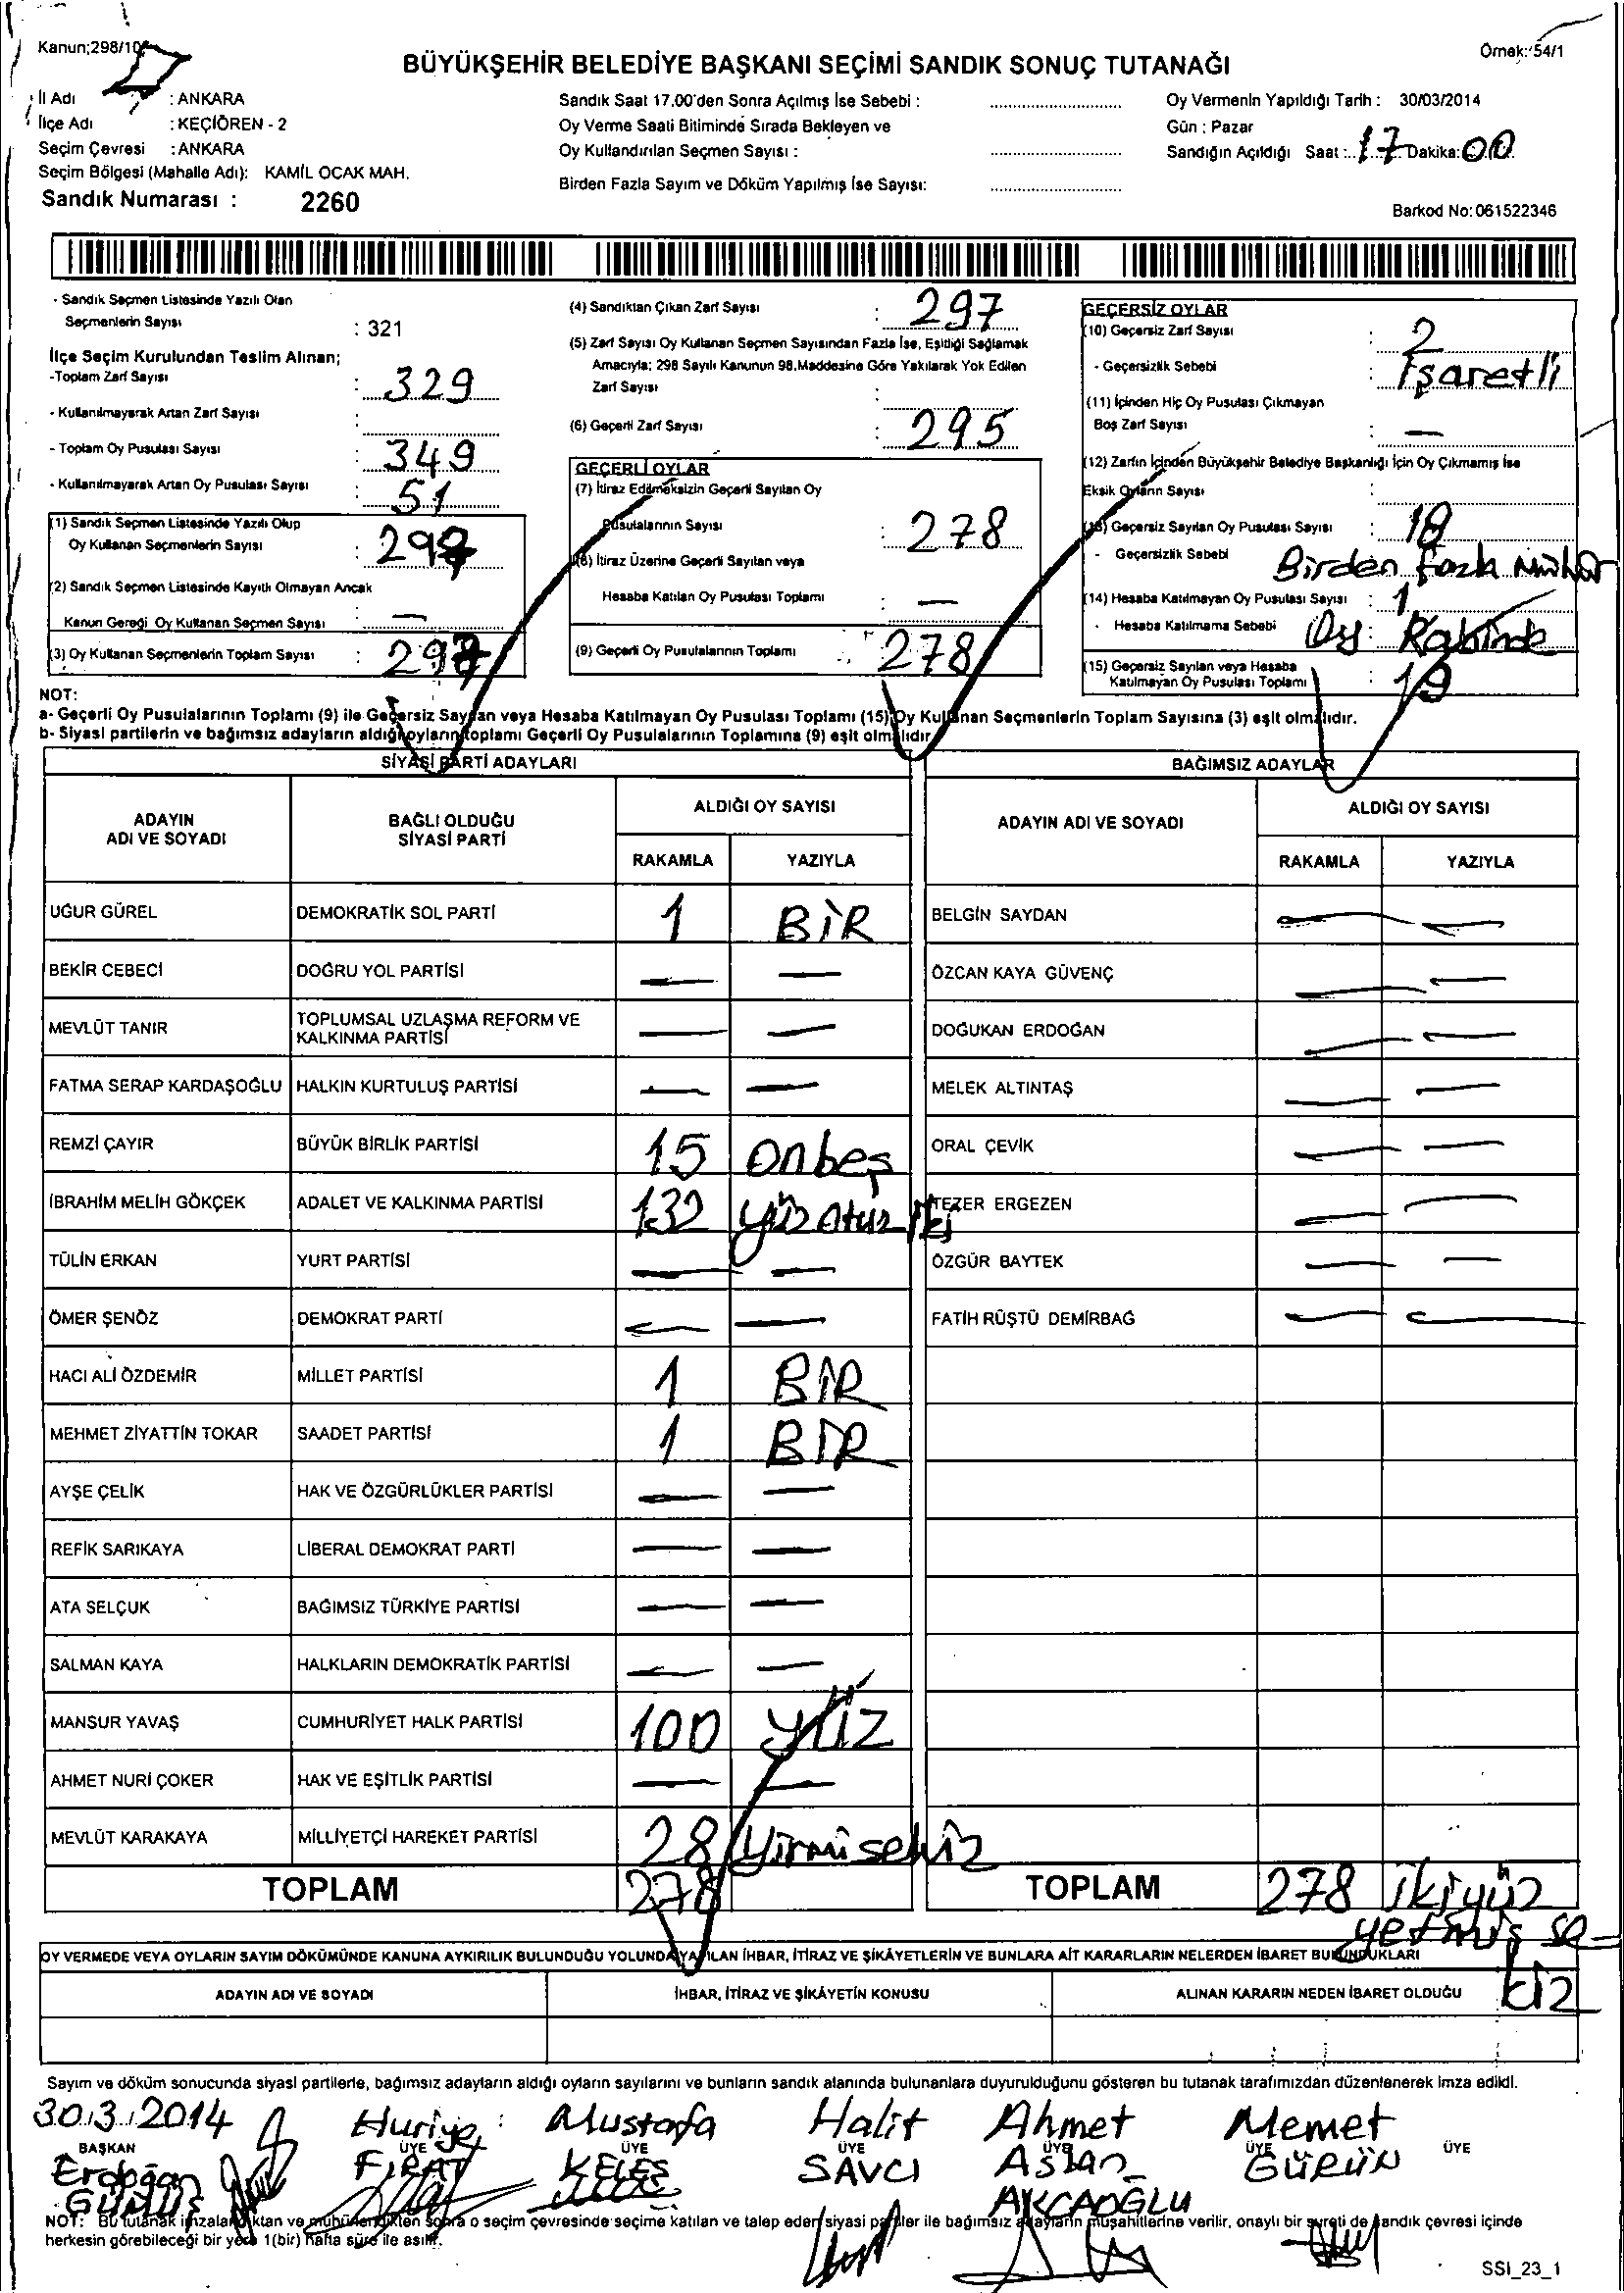 Kanun;298/10
BÜYÜKŞEHİR BELEDİYE BAŞKANI SEÇİMİ SANDIK SONUÇ TUTANAĞI
Örnek: 54/1
İl Adı : ANKARA
İlçe Adı : KEÇİÖREN - 2
Seçim Çevresi : ANKARA
Seçim Bölgesi (Mahalle Adı): KAMİL OCAK MAH.
Sandık Numarası : 2260
Sandık Saat 17.00'den Sonra Açılmış İse Sebebi : ..............................
Oy Verme Saati Bitiminde Sırada Bekleyen ve
Oy Kullandırılan Seçmen Sayısı : ..............................
Birden Fazla Sayım ve Döküm Yapılmış İse Sayısı: ..............................
Oy Vermenin Yapıldığı Tarih : 30/03/2014
Gün : Pazar
Sandığın Açıldığı Saat : 17 Dakika: 00
Barkod No: 061522346
- Sandık Seçmen Listesinde Yazılı Olan
Seçmenlerin Sayısı : 321
İlçe Seçim Kurulundan Teslim Alınan;
-Toplam Zarf Sayısı : 329
- Kullanılmayarak Artan Zarf Sayısı :
- Toplam Oy Pusulası Sayısı : 349
- Kullanılmayarak Artan Oy Pusulası Sayısı : 51
(1) Sandık Seçmen Listesinde Yazılı Olup
Oy Kullanan Seçmenlerin Sayısı : 297
(2) Sandık Seçmen Listesinde Kayıtlı Olmayan Ancak
Kanun Gereği Oy Kullanan Seçmen Sayısı : —
(3) Oy Kullanan Seçmenlerin Toplam Sayısı : 297
(4) Sandıktan Çıkan Zarf Sayısı : 297
(5) Zarf Sayısı Oy Kullanan Seçmen Sayısından Fazla İse, Eşitliği Sağlamak
Amacıyla; 298 Sayılı Kanunun 98.Maddesine Göre Yakılarak Yok Edilen
Zarf Sayısı :
(6) Geçerli Zarf Sayısı : 295
GEÇERLİ OYLAR
(7) İtiraz Edilmeksizin Geçerli Sayılan Oy
Pusulalarının Sayısı : 278
(8) İtiraz Üzerine Geçerli Sayılan veya
Hesaba Katılan Oy Pusulası Toplamı : —
(9) Geçerli Oy Pusulalarının Toplamı : 278
GEÇERSİZ OYLAR
(10) Geçersiz Zarf Sayısı : 2
- Geçersizlik Sebebi : İşaretli
(11) İçinden Hiç Oy Pusulası Çıkmayan
Boş Zarf Sayısı : —
(12) Zarfın İçinden Büyükşehir Belediye Başkanlığı İçin Oy Çıkmamış İse
Eksik Oyların Sayısı :
(13) Geçersiz Sayılan Oy Pusulası Sayısı : 18
- Geçersizlik Sebebi Birden Fazla Mühür
(14) Hesaba Katılmayan Oy Pusulası Sayısı : 1
- Hesaba Katılmama Sebebi : Oy Kabinde
(15) Geçersiz Sayılan veya Hesaba
Katılmayan Oy Pusulası Toplamı : 19
NOT:
a- Geçerli Oy Pusulalarının Toplamı (9) ile Geçersiz Sayılan veya Hesaba Katılmayan Oy Pusulası Toplamı (15) Oy Kullanan Seçmenlerin Toplam Sayısına (3) eşit olmalıdır.
b- Siyasi partilerin ve bağımsız adayların aldığı oyların toplamı Geçerli Oy Pusulalarının Toplamına (9) eşit olmalıdır.
SİYASİ PARTİ ADAYLARI
ADAYIN ADI VE SOYADI BAĞLI OLDUĞU SİYASİ PARTİ ALDIĞI OY SAYISI
RAKAMLA YAZIYLA
UĞUR GÜREL DEMOKRATİK SOL PARTİ 1 BİR
BEKİR CEBECİ DOĞRU YOL PARTİSİ — —
MEVLÜT TANIR TOPLUMSAL UZLAŞMA REFORM VE KALKINMA PARTİSİ — —
FATMA SERAP KARDAŞOĞLU HALKIN KURTULUŞ PARTİSİ — —
REMZİ ÇAYIR BÜYÜK BİRLİK PARTİSİ 15 onbeş
İBRAHİM MELİH GÖKÇEK ADALET VE KALKINMA PARTİSİ 132 yüz otuz iki
TÜLİN ERKAN YURT PARTİSİ — —
ÖMER ŞENÖZ DEMOKRAT PARTİ — —
HACI ALİ ÖZDEMİR MİLLET PARTİSİ 1 BİR
MEHMET ZİYATTİN TOKAR SAADET PARTİSİ 1 BİR
AYŞE ÇELİK HAK VE ÖZGÜRLÜKLER PARTİSİ — —
REFİK SARIKAYA LİBERAL DEMOKRAT PARTİ — —
ATA SELÇUK BAĞIMSIZ TÜRKİYE PARTİSİ — —
SALMAN KAYA HALKLARIN DEMOKRATİK PARTİSİ — —
MANSUR YAVAŞ CUMHURİYET HALK PARTİSİ 100 YÜZ
AHMET NURİ ÇOKER HAK VE EŞİTLİK PARTİSİ — —
MEVLÜT KARAKAYA MİLLİYETÇİ HAREKET PARTİSİ 28 Yirmisekiz
TOPLAM 278
BAĞIMSIZ ADAYLAR
ADAYIN ADI VE SOYADI ALDIĞI OY SAYISI
RAKAMLA YAZIYLA
BELGİN SAYDAN — —
ÖZCAN KAYA GÜVENÇ — —
DOĞUKAN ERDOĞAN — —
MELEK ALTINTAŞ — —
ORAL ÇEVİK — —
TEZER ERGEZEN — —
ÖZGÜR BAYTEK — —
FATİH RÜŞTÜ DEMİRBAĞ — —
TOPLAM 278 ikiyüz
yetmiş se-
kiz
OY VERMEDE VEYA OYLARIN SAYIM DÖKÜMÜNDE KANUNA AYKIRILIK BULUNDUĞU YOLUNDA YAPILAN İHBAR, İTİRAZ VE ŞİKÂYETLERİN VE BUNLARA AİT KARARLARIN NELERDEN İBARET BULUNDUKLARI
ADAYIN ADI VE SOYADI İHBAR, İTİRAZ VE ŞİKÂYETİN KONUSU ALINAN KARARIN NEDEN İBARET OLDUĞU
Sayım ve döküm sonucunda siyasi partilerle, bağımsız adayların aldığı oyların sayılarını ve bunların sandık alanında bulunanlara duyurulduğunu gösteren bu tutanak tarafımızdan düzenlenerek imza edildi.
30.3.2014 Huriye Mustafa Halit Ahmet Memet
BAŞKAN ÜYE ÜYE ÜYE ÜYE ÜYE ÜYE
Erdoğan FIRAT KELEŞ SAVCI Aslan GÜRÜN
GÜMÜŞ AKÇAOĞLU
NOT: Bu tutanak imzalandıktan ve mühürlendikten sonra o seçim çevresinde seçime katılan ve talep eden siyasi partiler ile bağımsız adayların müşahitlerine verilir, onaylı bir sureti de sandık çevresi içinde
herkesin görebileceği bir yere 1(bir) hafta süre ile asılır.
SSI_23_1